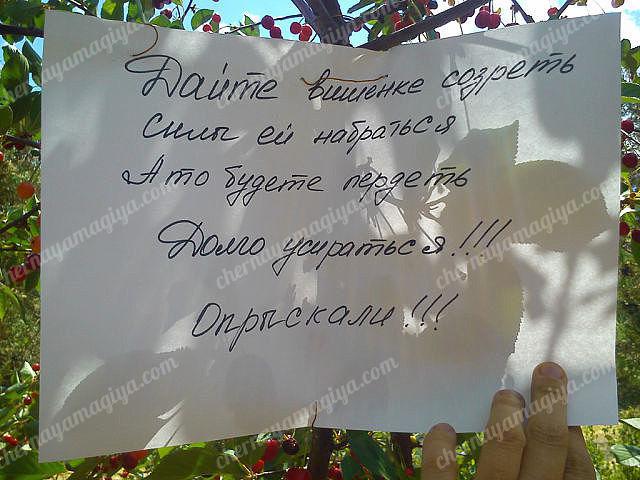 Дайте вишенке созреть
Силы ей набраться
А то будете пердеть
Долго усираться!!!!
Опрыскали!!!
chernayamagiya.com